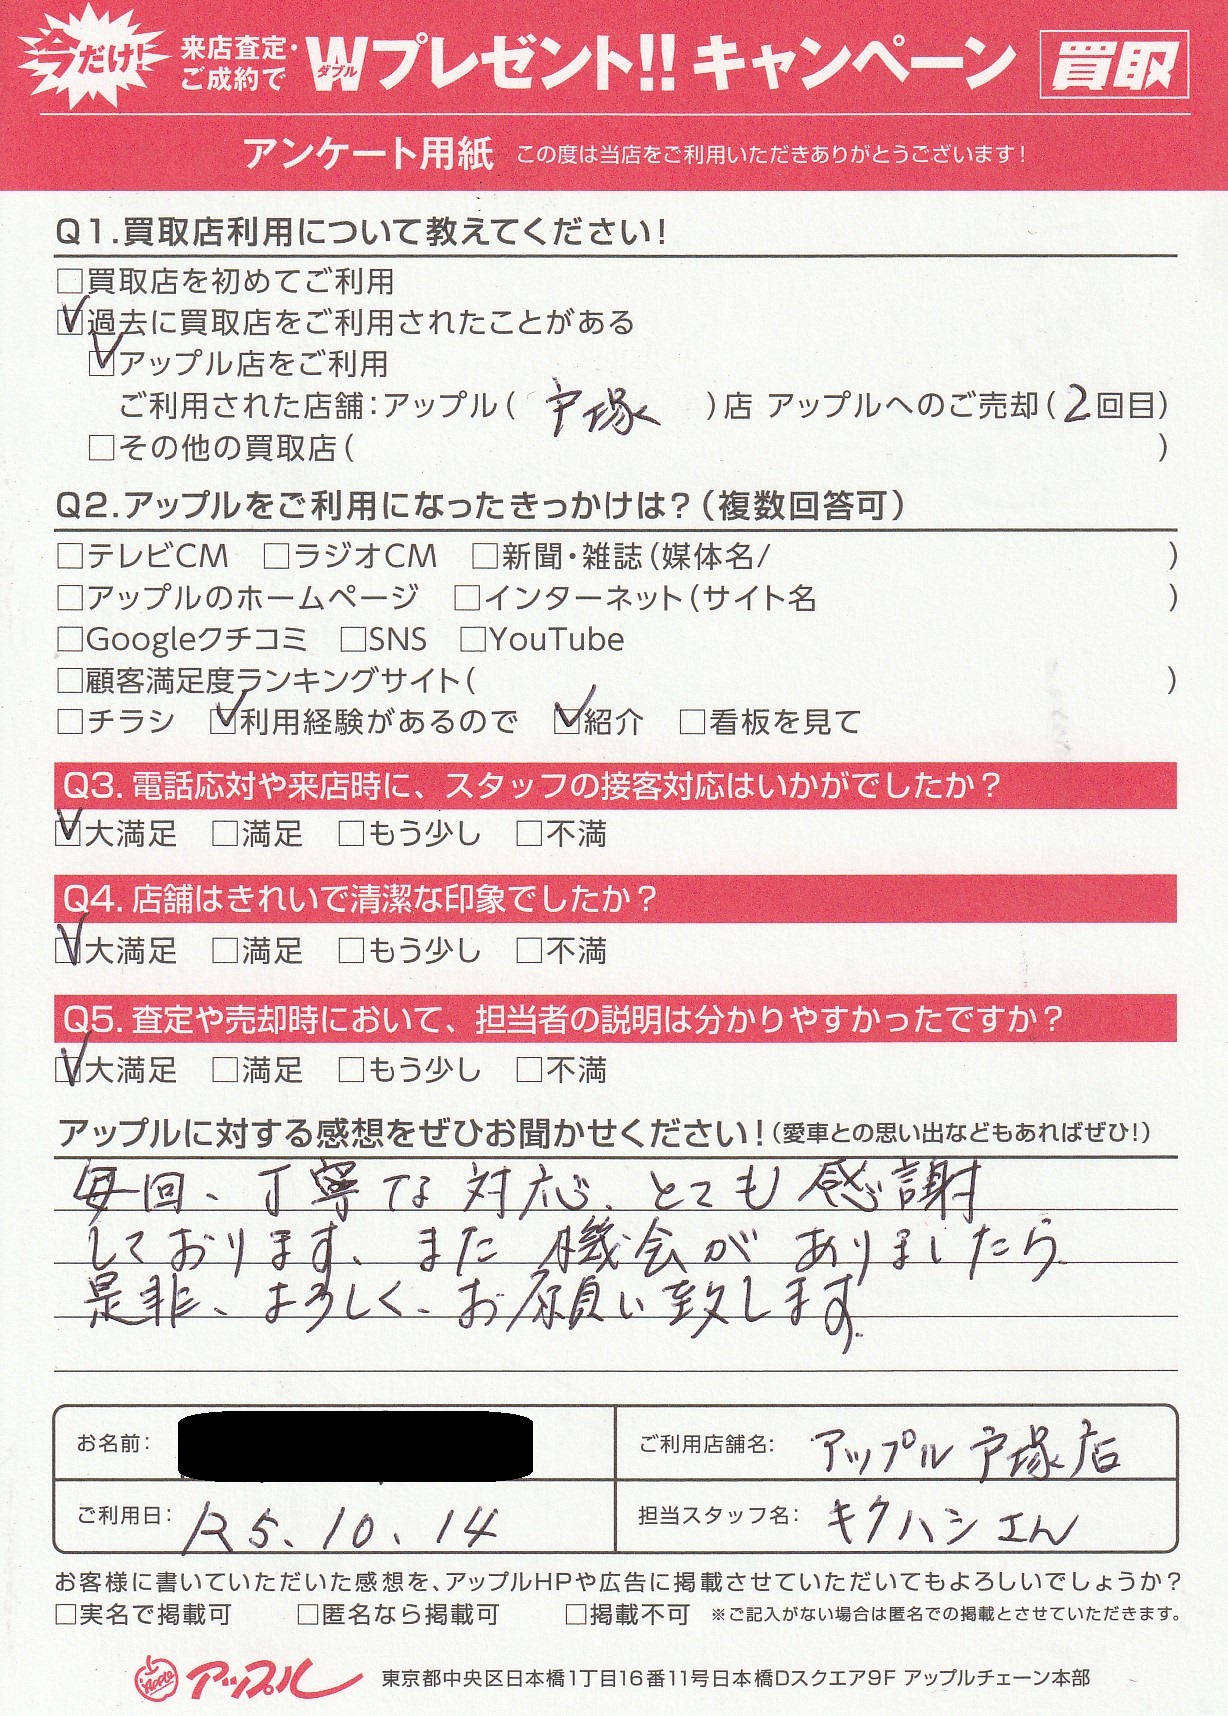 今だけ! 来店査定・ご成約で Wダブルプレゼント!! キャンペーン 買取
アンケート用紙 この度は当店をご利用いただきありがとうございます!
Q1.買取店利用について教えてください!
□買取店を初めてご利用
☑過去に買取店をご利用されたことがある
☑アップル店をご利用
ご利用された店舗:アップル( 戸塚 )店 アップルへのご売却(2回目)
□その他の買取店( )
Q2.アップルをご利用になったきっかけは?(複数回答可)
□テレビCM □ラジオCM □新聞・雑誌(媒体名/ )
□アップルのホームページ □インターネット(サイト名 )
□Googleクチコミ □SNS □YouTube
□顧客満足度ランキングサイト( )
□チラシ ☑利用経験があるので ☑紹介 □看板を見て
Q3. 電話応対や来店時に、スタッフの接客対応はいかがでしたか?
☑大満足 □満足 □もう少し □不満
Q4. 店舗はきれいで清潔な印象でしたか?
☑大満足 □満足 □もう少し □不満
Q5. 査定や売却時において、担当者の説明は分かりやすかったですか?
☑大満足 □満足 □もう少し □不満
アップルに対する感想をぜひお聞かせください!(愛車との思い出などもあればぜひ!)
毎回、丁寧な対応、とても感謝
しております、また機会がありましたら
是非、よろしく、お願い致します。
お名前: ご利用店舗名: アップル戸塚店
ご利用日: R5.10.14 担当スタッフ名: キクハシさん
お客様に書いていただいた感想を、アップルHPや広告に掲載させていただいてもよろしいでしょうか?
□実名で掲載可 □匿名なら掲載可 □掲載不可 ※ご記入がない場合は匿名での掲載とさせていただきます。
Apple アップル 東京都中央区日本橋1丁目16番11号日本橋Dスクエア9F アップルチェーン本部